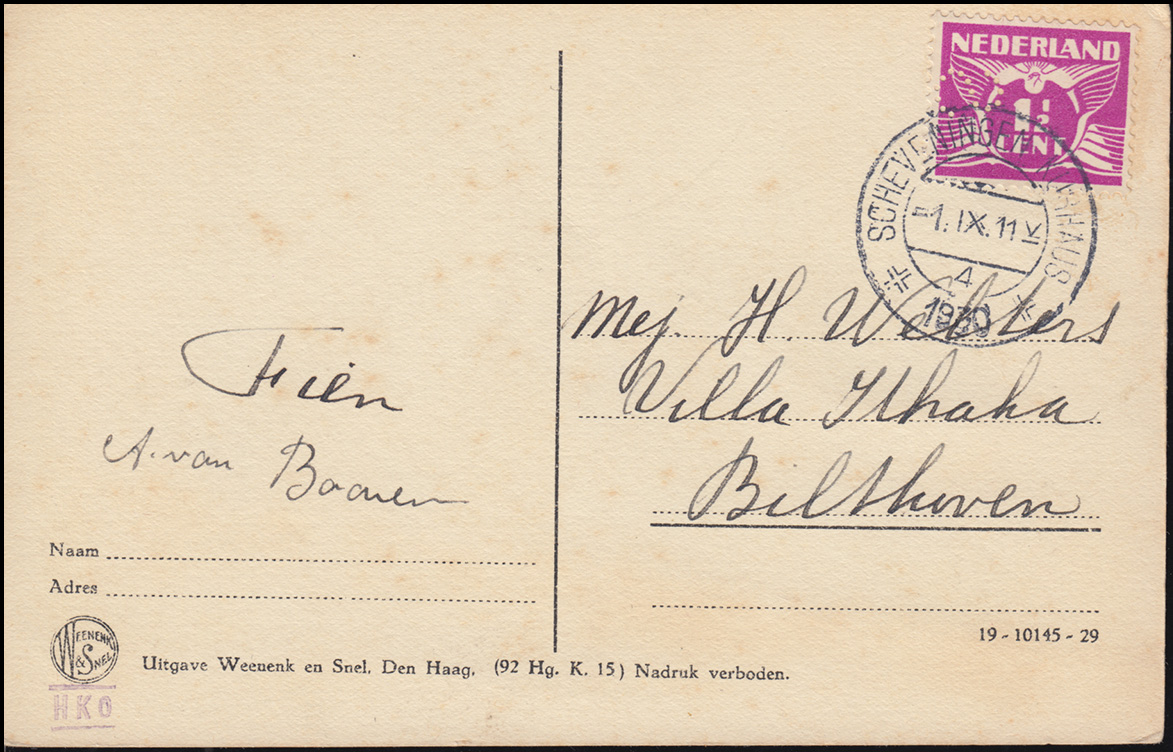 NEDERLAND
1½
CENT
SCHEVENINGEN KURHAUS
-1. IX. 11 V
4
1930
Mej. H. Wolters
Villa Ithaka
Bilthoven
Fien
A. van
Naam
Adres
19-10145-29
WEENENK & SNEL
Uitgave Weenenk en Snel. Den Haag. (92 Hg. K. 15) Nadruk verboden.
HKO